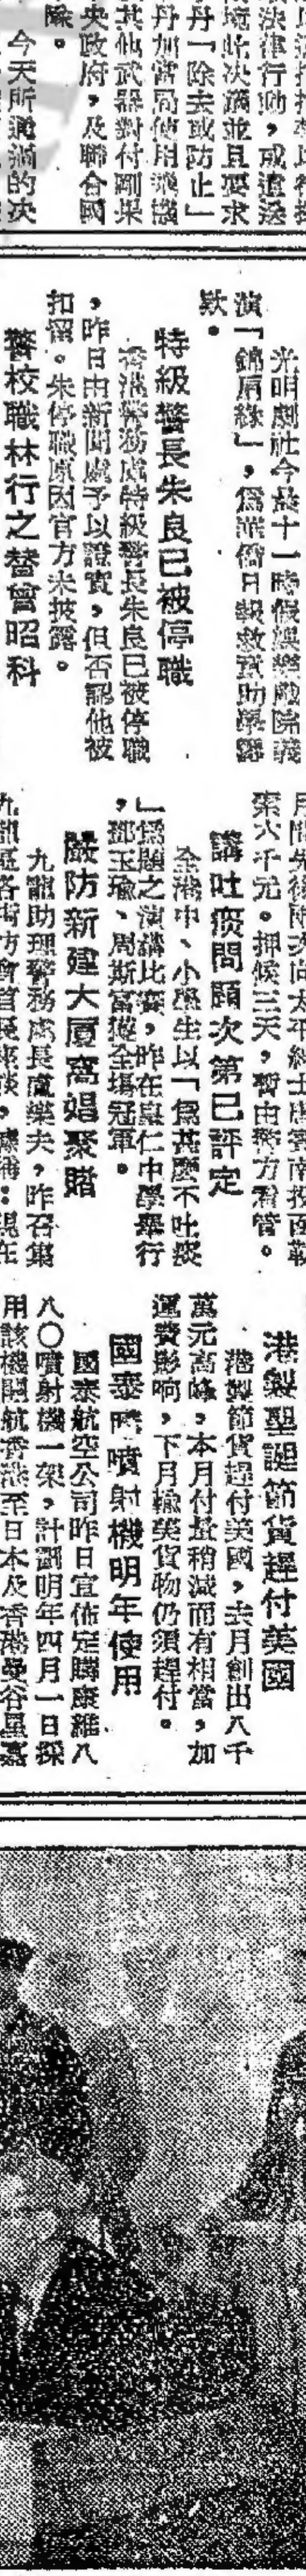 境此決議並且要求
丹「除去或防止」
丹加當局使用飛機
其他武器對付剛果
央政府,及聯合國
隊。
今天所通過的決
光明劇社今晨十一時假娛樂戲院義
演「錦屏緣」,爲華僑日報救貧助學籌
欵。
特級警長朱良已被停職
香港警務處特級警長朱良已被停職
,昨日由新聞處予以證實,但否認他被
扣留。朱停職原因官方未披露。
警校職林行之替曾昭科
索六千元。押候三天,暫由警方看管。
講吐痰問題次第已評定
全港中、小學生以「爲甚麼不吐痰
」爲題之演講比賽,昨在皇仁中學舉行
,鄧玉瑜、周斯富獲全場冠軍。
嚴防新建大厦窩娼聚賭
九龍助理警務處長盧樂夫,昨召集
港製聖誕節貨趕付美國
港製節貨趕付美國,去月創出八千
萬元高峰,本月付量稍減而有相當,加
運費影响,下月輸英貨物仍須趕付。
國泰噴射機明年使用
國泰航空公司昨日宣佈定購康維八
八〇噴射機一架,計劃明年四月一日採
用該機開航香港至日本及香港曼谷星嘉